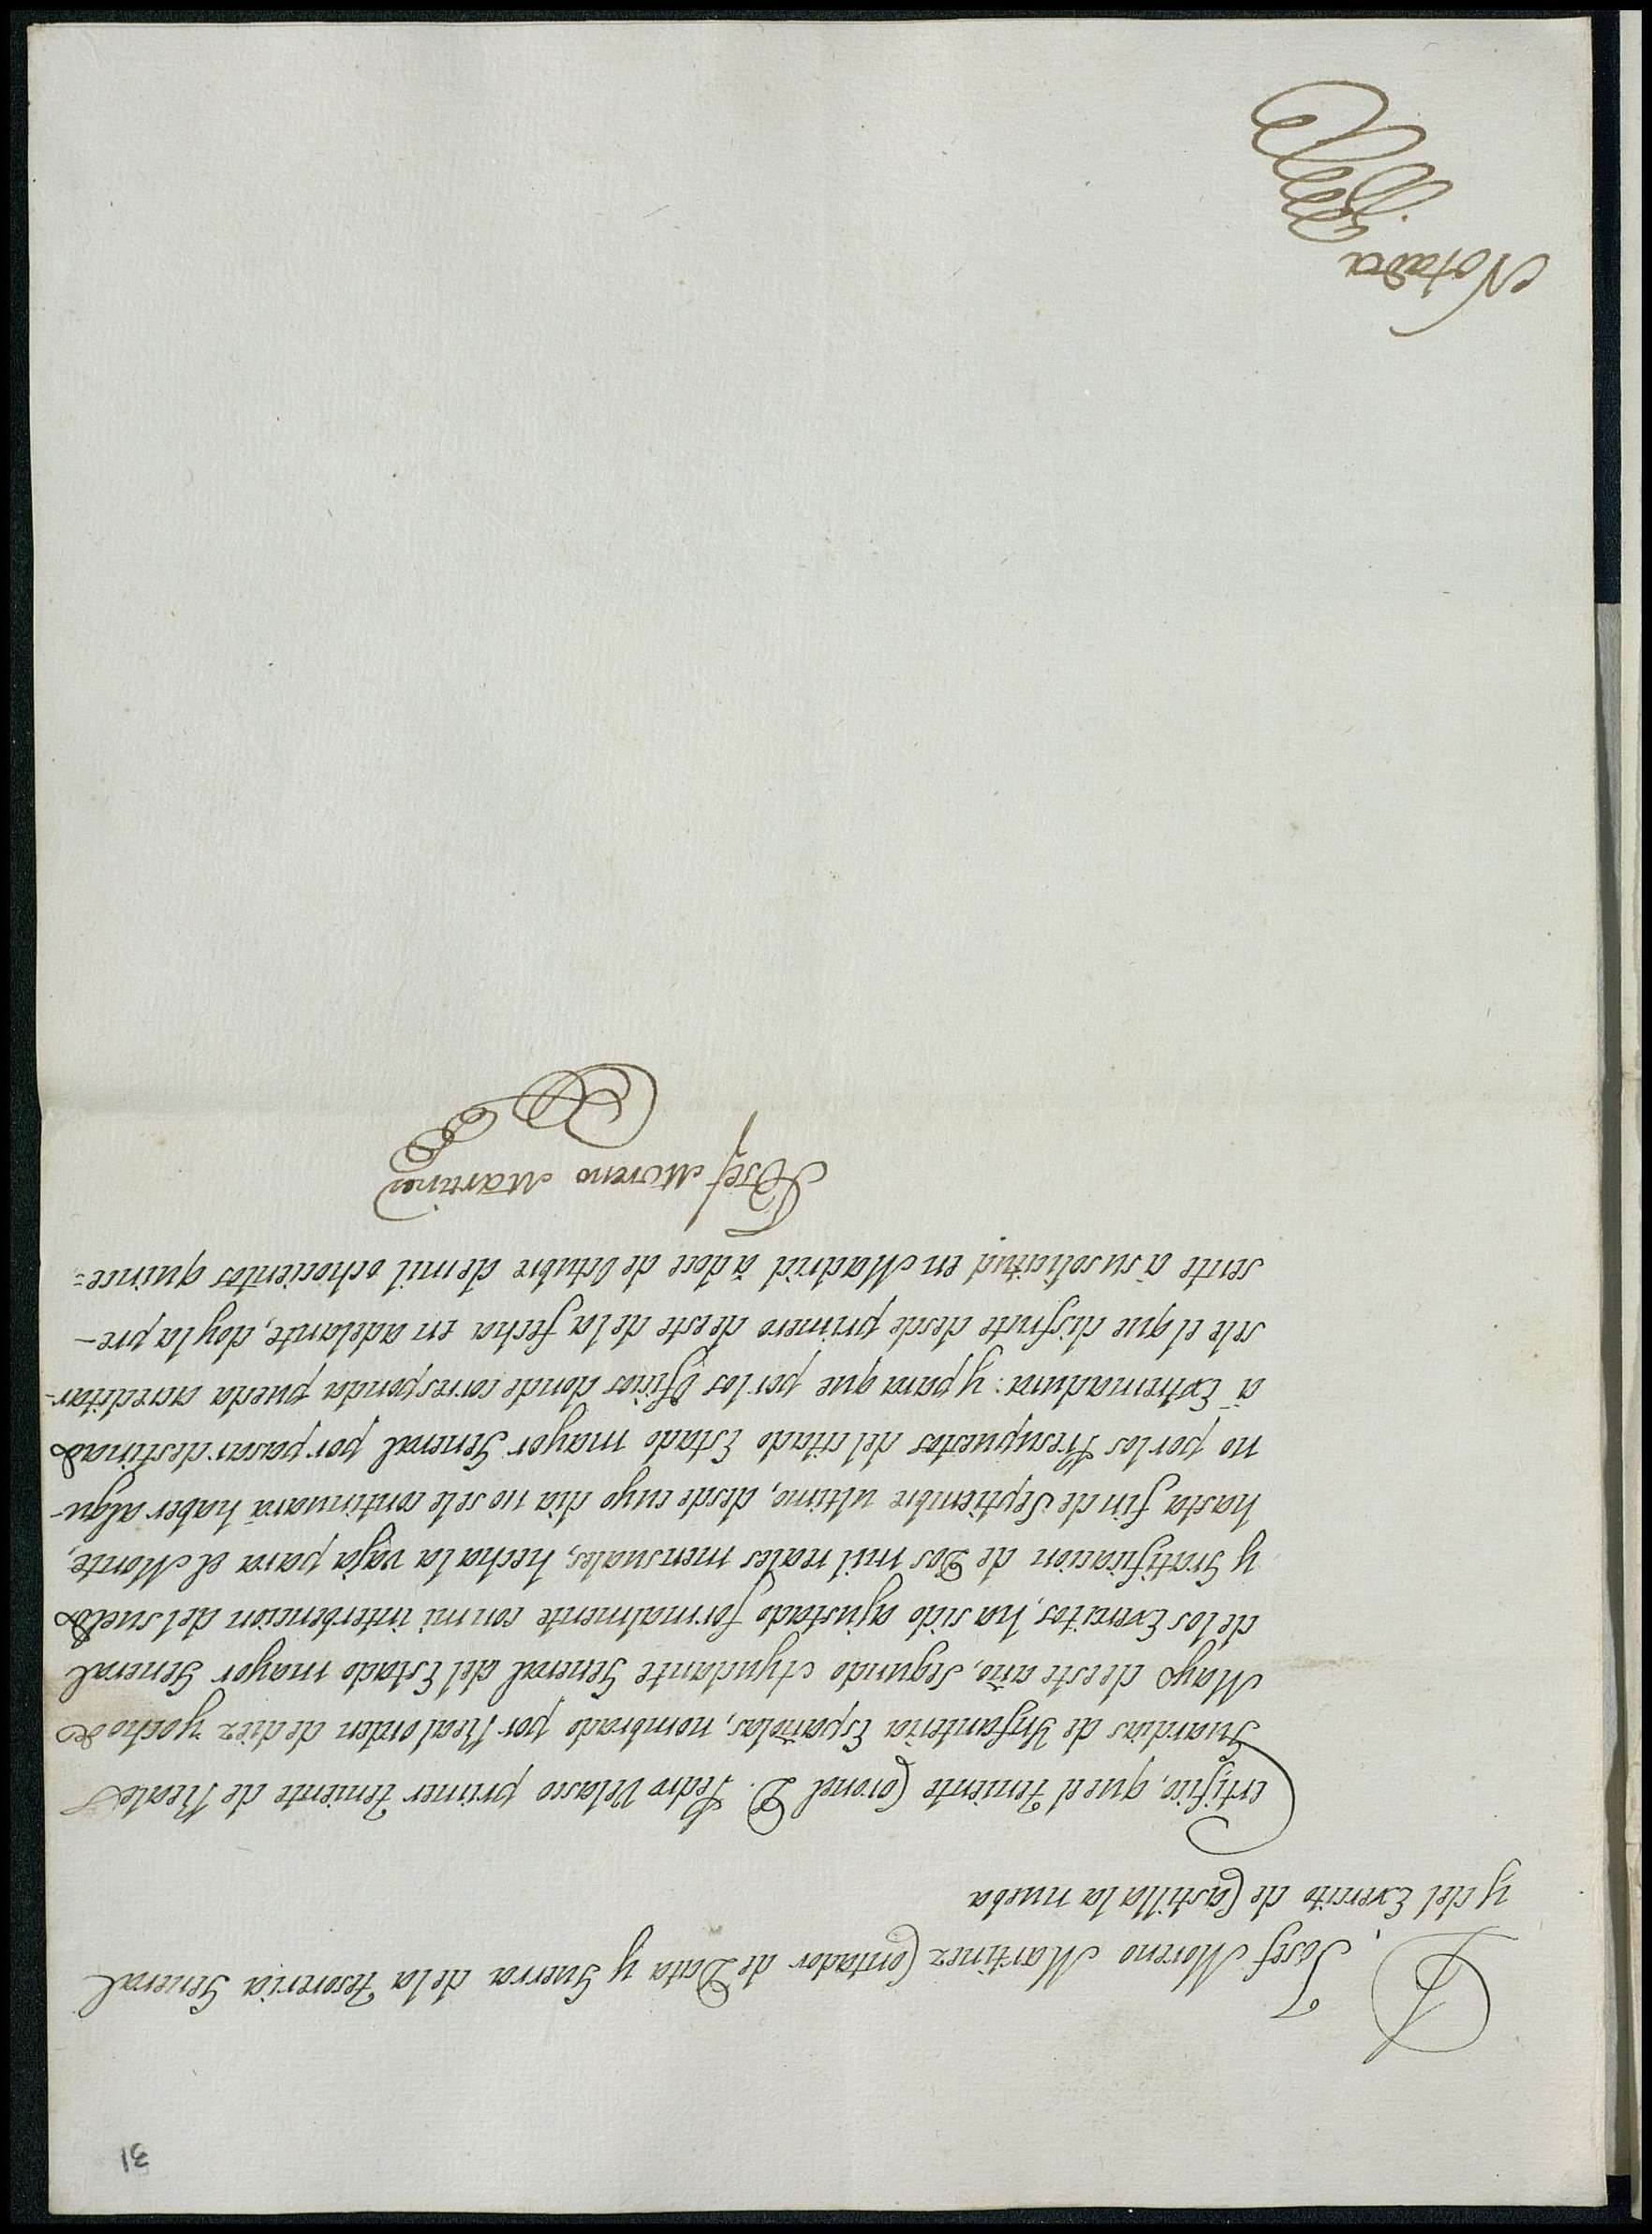 31
D. Josef Moreno Martinez Contador de Data y Guerra de la Tesoreria General
y del Exercito de Castilla la nueba
Certifico, que el Teniente Coronel D. Pedro Velasco primer Teniente de Reales
Guardias de Ynfanteria Españolas, nombrado por Real orden de diez y ocho de
Mayo de este año, Segundo Ayudante General del Estado mayor General
de los Exercitos, ha sido ajustado formalmente con mi interbencion del sueldo
y Gratificacion de Dos mil reales mensuales, hecha la vaja para el Monte,
hasta fin de Septiembre ultimo, desde cuyo dia no se le continuará haber algu-
no por los Presupuestos del citado Estado mayor General por pasar destinado
á Extremadura: y para que por los Oficios donde corresponda pueda acreditar-
sele el que disfrute desde primero de este de la fecha en adelante, doy la pre-
sente á su solicitud en Madrid á doce de Octubre de mil ochocientos quince=
Josef Moreno Martinez
Notada